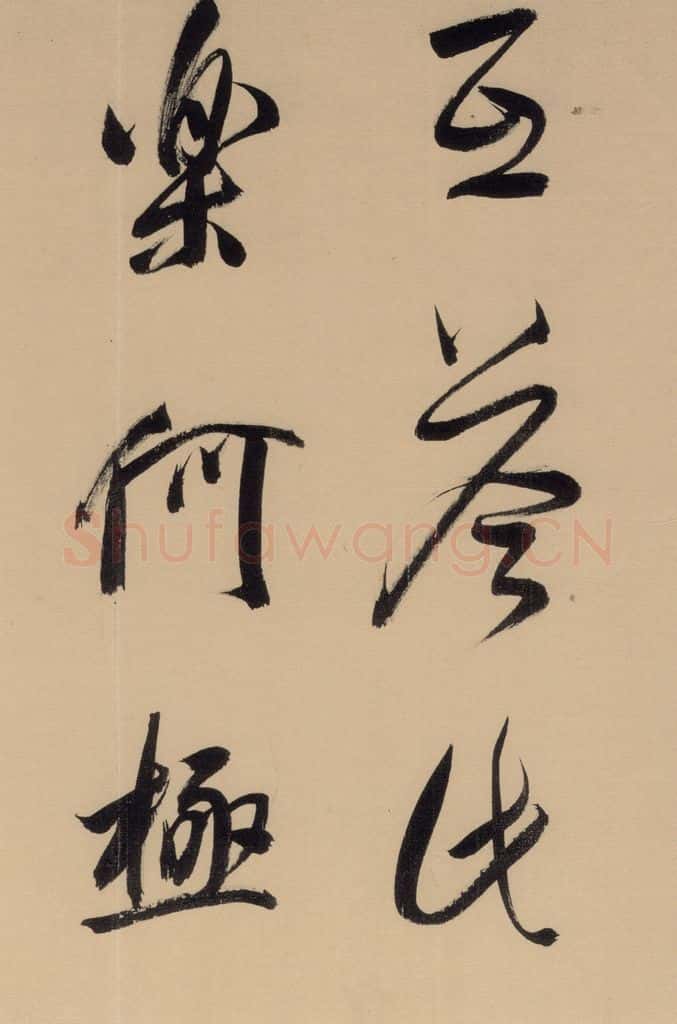 互答此
樂何極
Shufawang.CN